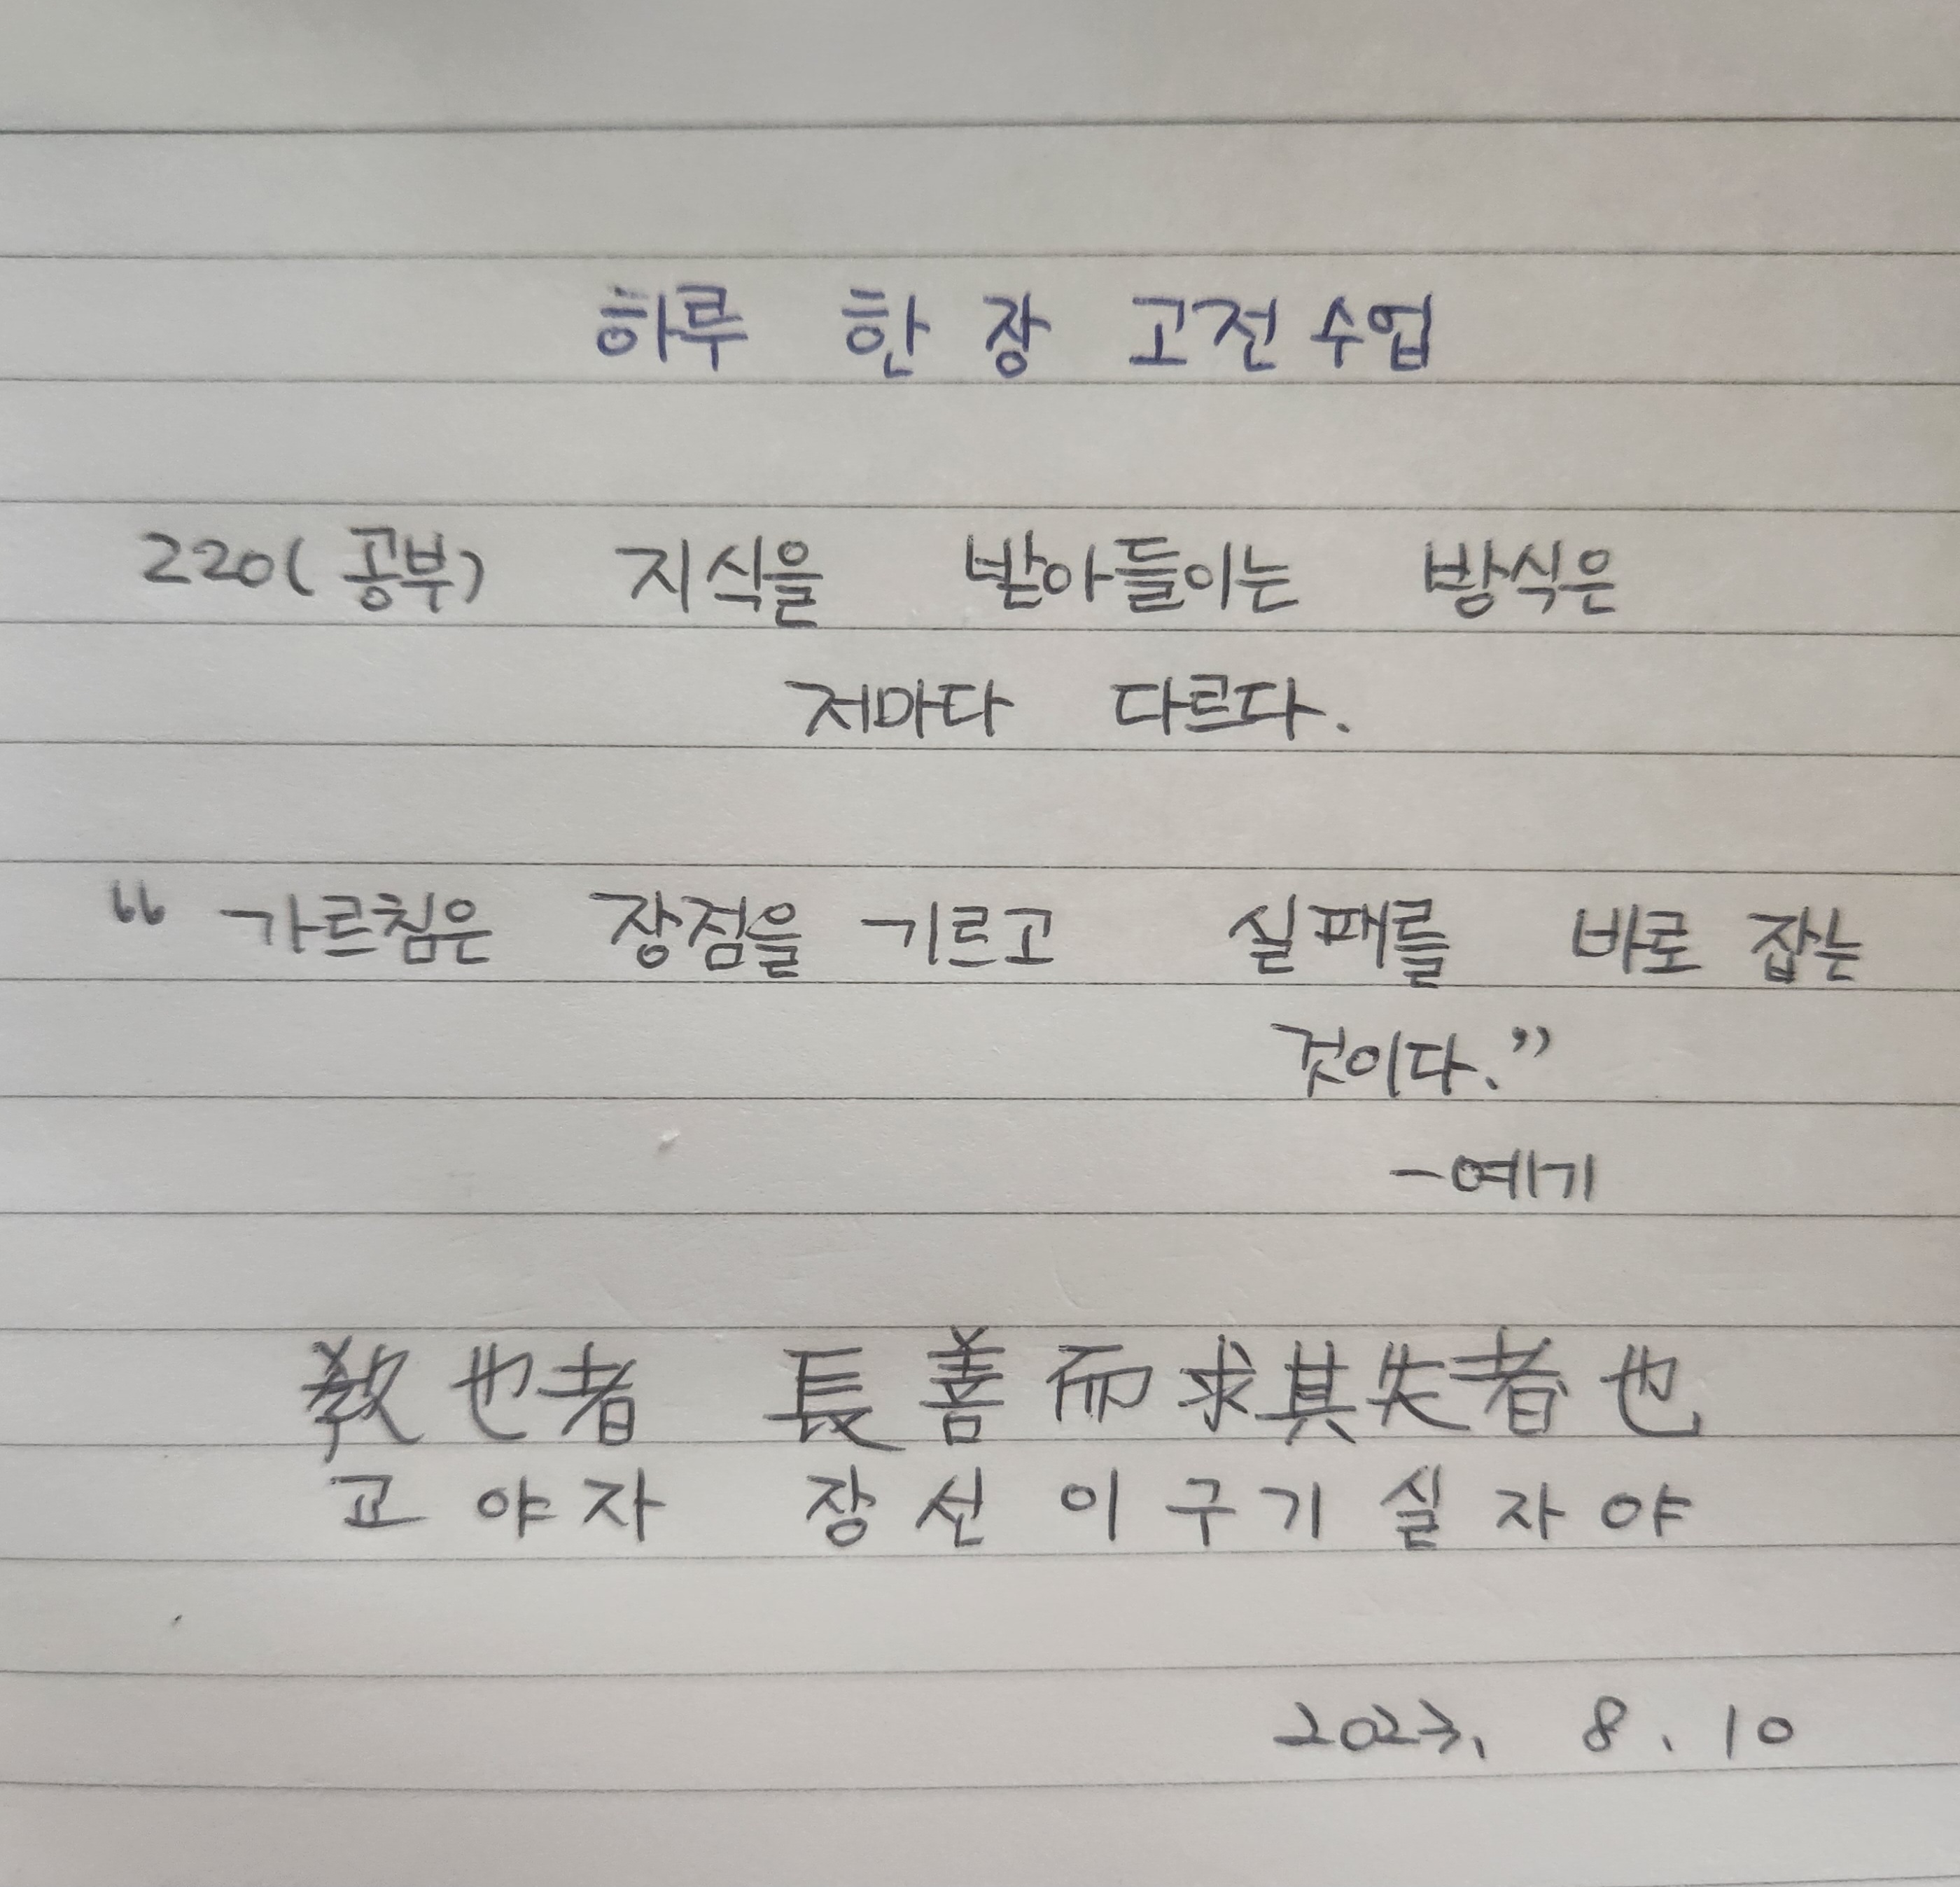 하루 한 장 고전수업
220(공부) 지식을 받아들이는 방식은
저마다 다르다.
“ 가르침은 장점을 기르고 실패를 바로 잡는
것이다.”
-예기
敎也者 長善而求其失者也
교야자 장선이구기실자야
2023. 8. 10